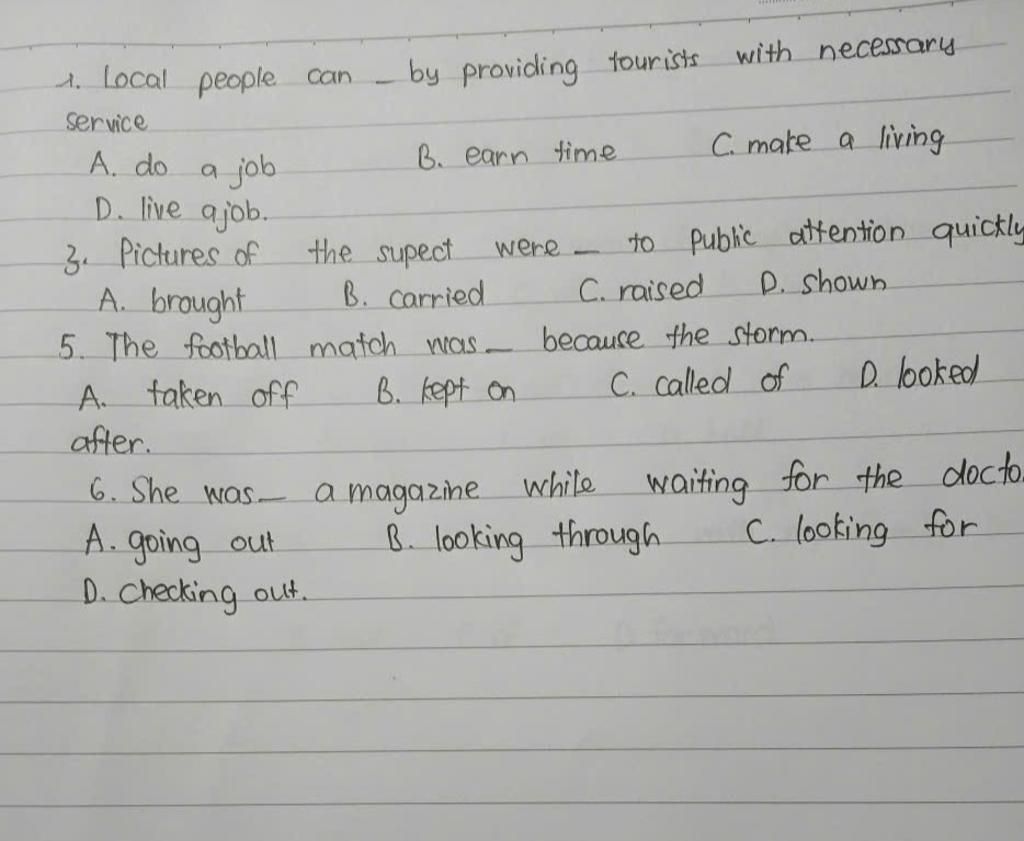 1. Local people can _ by providing tourists with necessary
service
A. do a job B. earn time C. make a living
D. live a job.
3. Pictures of the supect were _ to public attention quickly
A. brought B. carried C. raised D. shown
5. The football match was _ because the storm.
A. taken off B. kept on C. called of D. looked
after.
6. She was _ a magazine while waiting for the docto
A. going out B. looking through C. looking for
D. checking out.